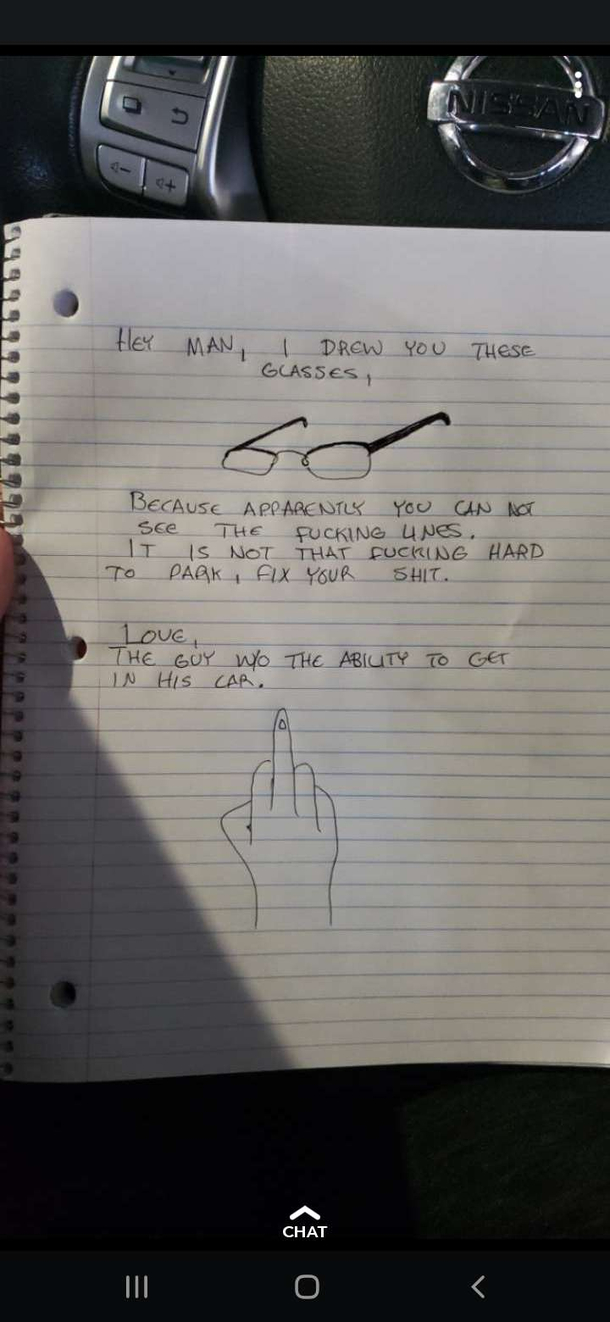 NISSAN
HEY MAN, I DREW YOU THESE
GLASSES,
BECAUSE APPARENTLY YOU CAN NOT
SEE THE FUCKING LINES.
IT IS NOT THAT FUCKING HARD
TO PARK, FIX YOUR SHIT.
LOVE,
THE GUY W/O THE ABILITY TO GET
IN HIS CAR.
CHAT